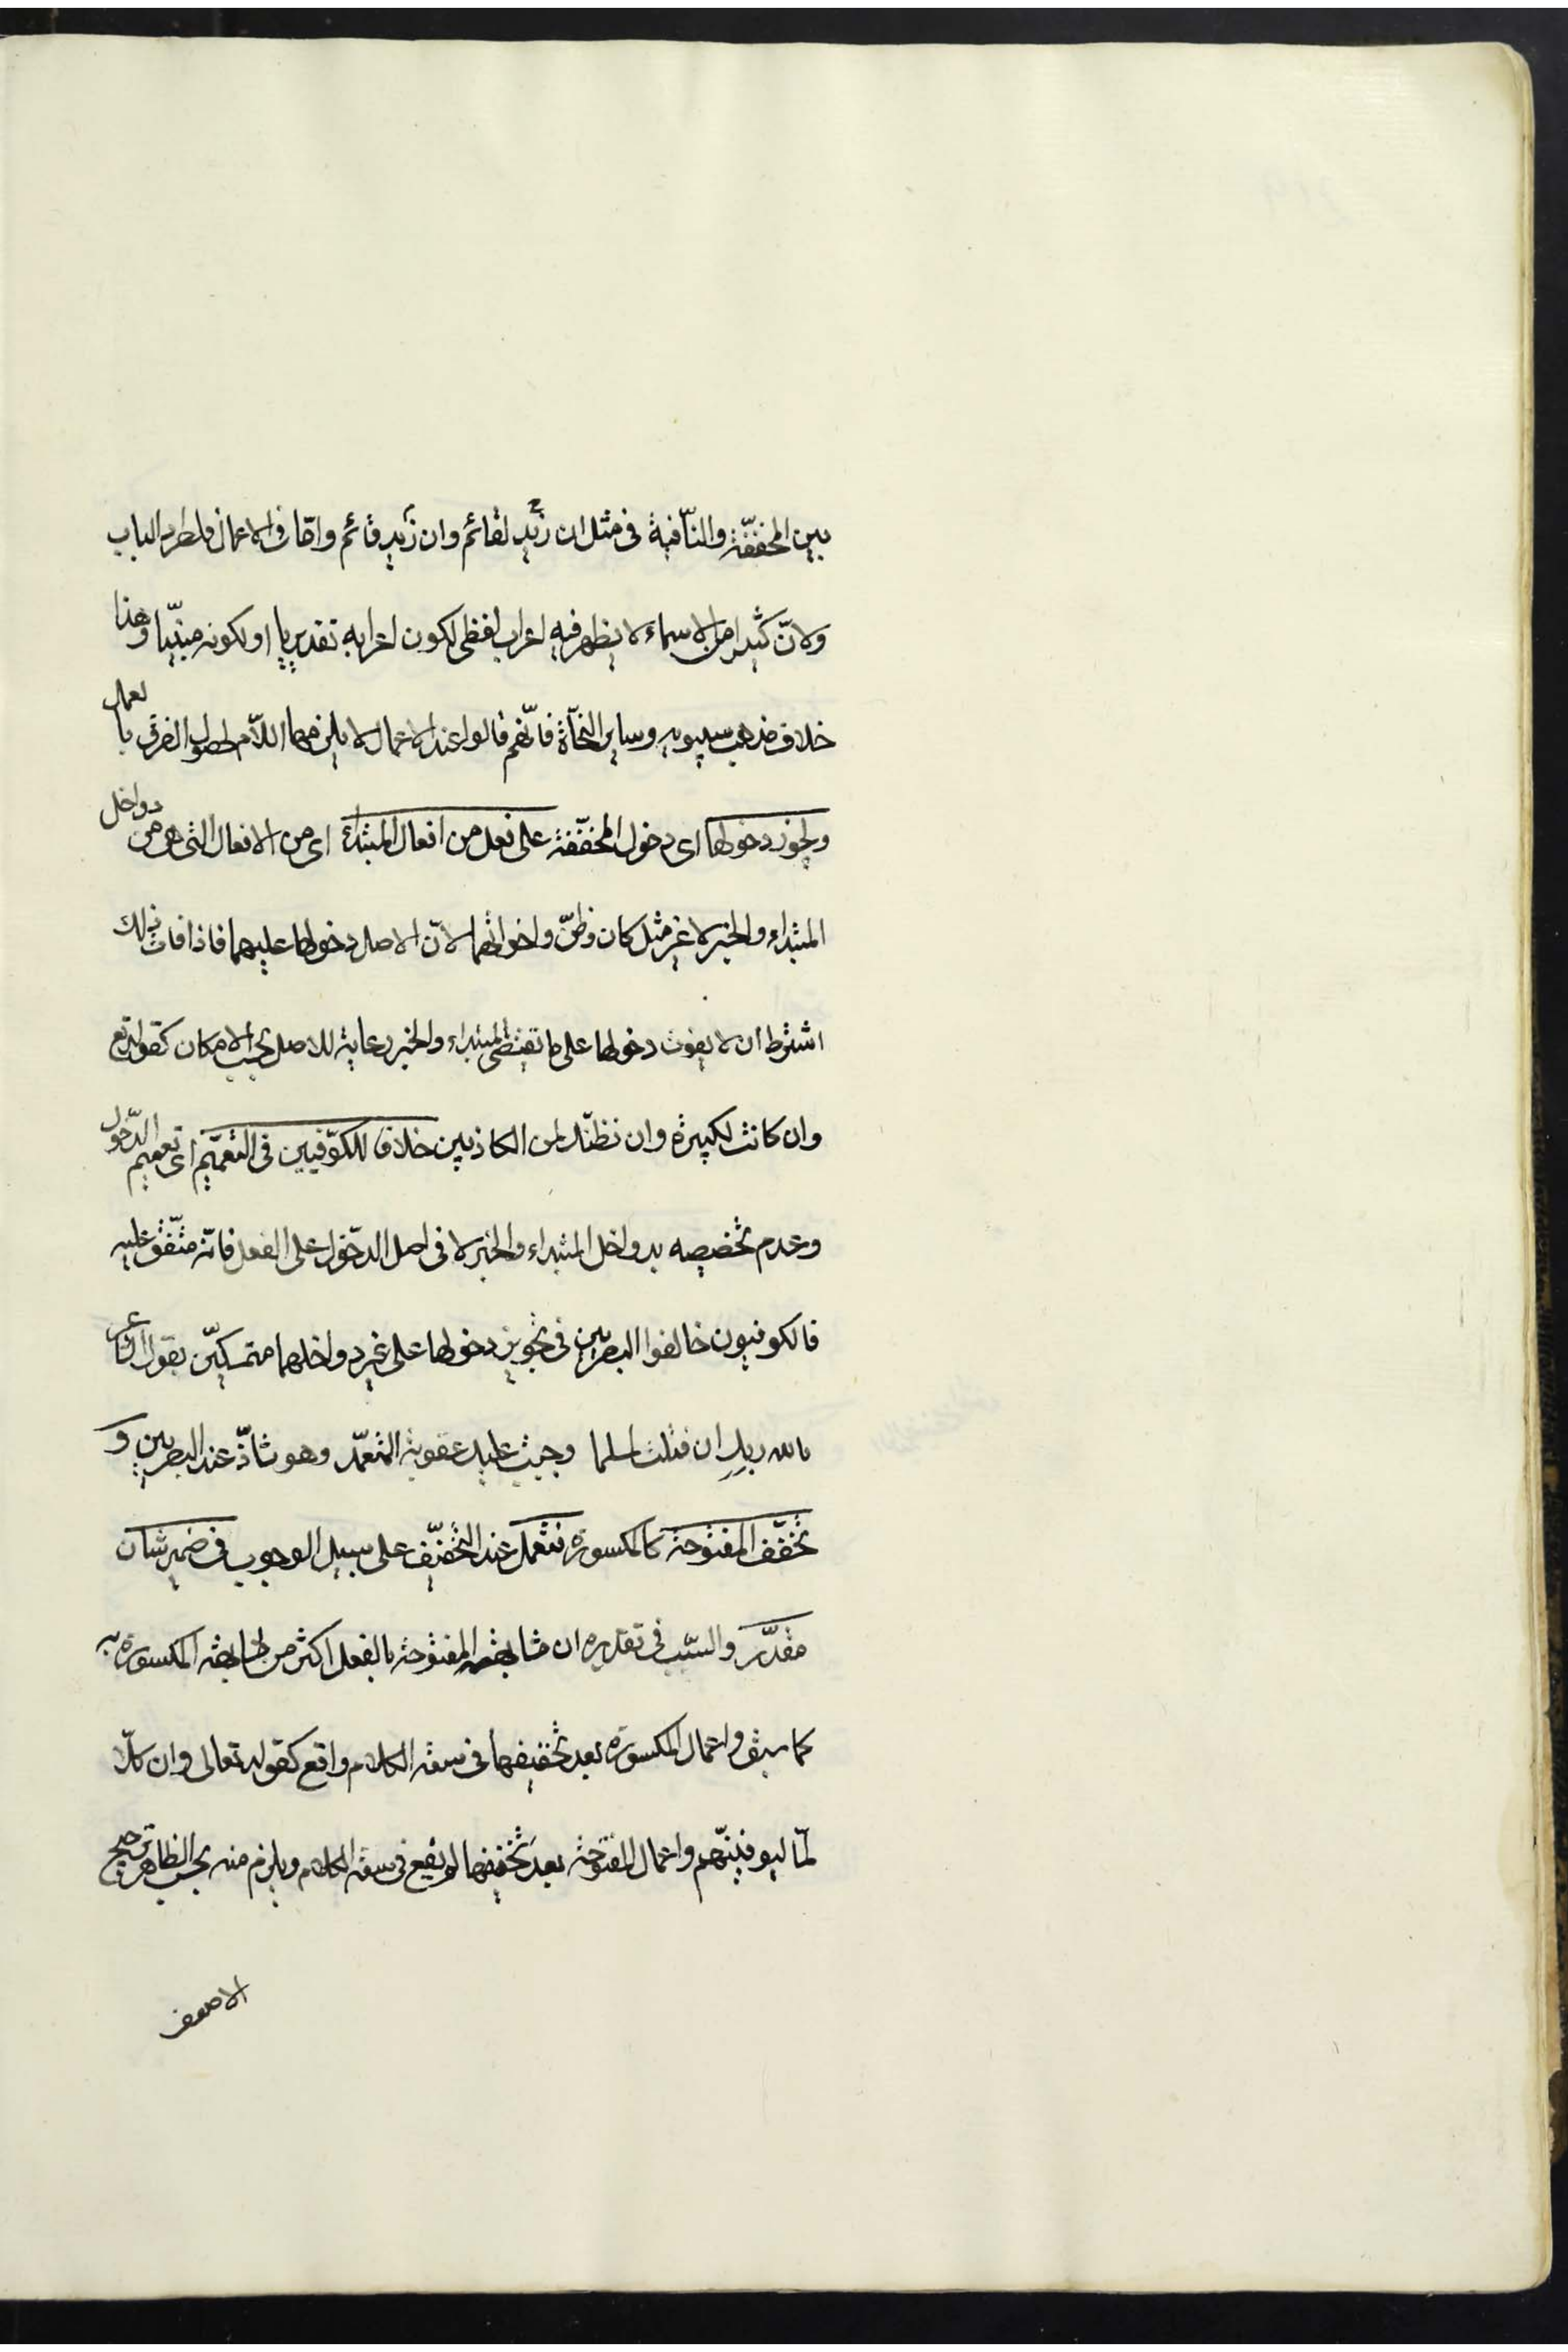 بين المخفّفة والنّافية فى مثل ان زيد لقائم وان زيد قائم وامّا فى الاعمال فلطرد الباب
ولانّ كثيرا من الاسماء لا يظهر فيه اعراب لفظى لكون اعرابه تقديريا او لكونه مبنيّا وهذا
خلاف مذهب سيبويه وساير النحاة فانّهم قالوا عند الاعمال لا يلزمها اللّام لحصول الفرق بالعمل
ويجوز دخولها اى دخول المخفّفة على فعل من افعال المبتداء اى من الافعال التى هى من دواخل
المبتداء والخبر لا غير مثل كان وظنّ واخواتهما لانّ الاصل دخولها عليهما فاذا فات ذلك
اشترط ان لا يفوت دخولها على ما يقتضى المبتداء والخبر رعاية للاصل بحسب الامكان كقوله تع
وان كانت لكبيرة وان نظنّك لمن الكاذبين خلافا للكوّفيين فى التعميم اى تعميم الدّخول
وعدم تخصيصه بدواخل المبتداء والخبر لا فى اصل الدّخول على الفعل فانّه متّفق عليه
فالكوفيون خالفوا البصريين فى تجويز دخولها على غير دواخلهما متمسكيّن بقول الشاعر
بالله ربك ان قتلت لمسلما وجبت عليك عقوبة المتعمّد وهو شاذّ عند البصريين و
تخفّف المفتوحة كالمكسورة فتعمل عند التخفيّف على سبيل الوجوب فى ضمير شان
مقدّر والسّبب فى تقديره ان مشابهة المفتوحة بالفعل اكثر من مشابهة المكسورة به
كما سبق واعمال المكسورة بعد تخفيفها فى سعة الكلام واقع كقوله تعالى وان كلّا
لمّا ليوفينّهم واعمال المفتوحة بعد تخفيفها لم يقع فى سعة الكلام ويلزم منه بحسب الظاهر ترجيح
الاضعف